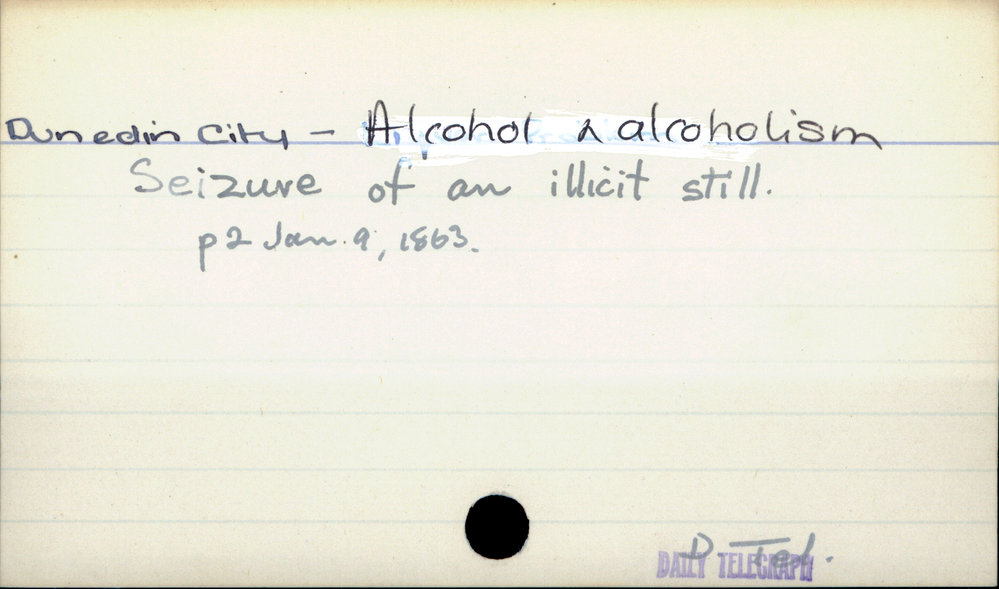 Dunedin City - Alcohol & alcoholism
Seizure of an illicit still.
p2 Jan. 9, 1863.
D. Tel.
DAILY TELEGRAPH